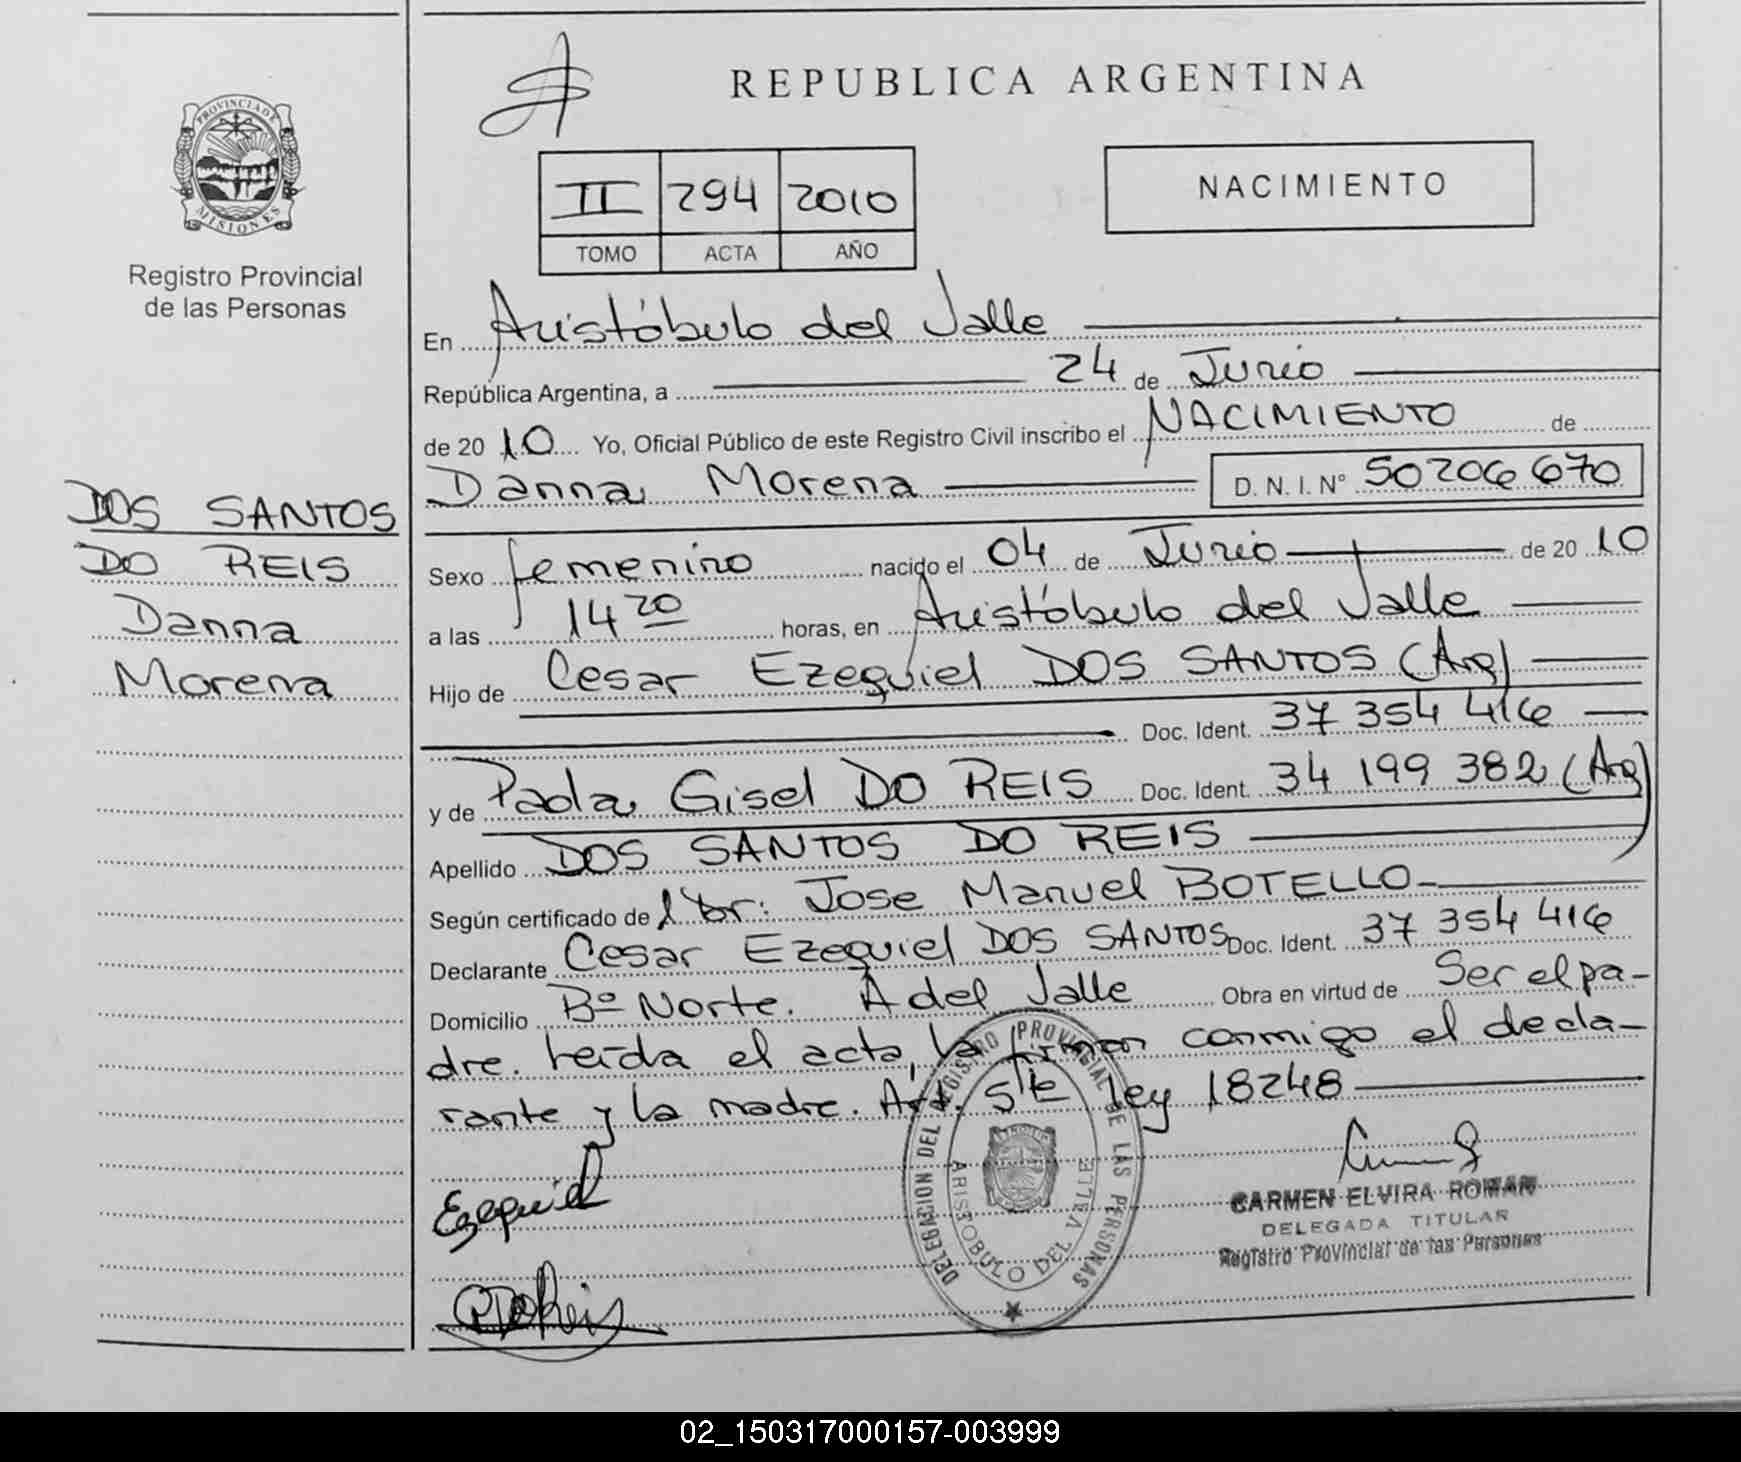 REPUBLICA ARGENTINA
PROVINCIA DE
MISIONES
Registro Provincial
de las Personas
II 294 2010
TOMO ACTA AÑO
NACIMIENTO
En Aristóbulo del Valle
República Argentina, a 24 de Junio
de 2010 Yo, Oficial Público de este Registro Civil inscribo el NACIMIENTO de
Danna Morena D. N. I. N° 50206670
DOS SANTOS
DO REIS
Danna
Morena
Sexo femenino nacido el 04 de Junio de 2010
a las 14 20 horas, en Aristóbulo del Valle
Hijo de Cesar Ezequiel DOS SANTOS (Arg)
Doc. Ident. 37 354 416
y de Paola Gisel DO REIS Doc. Ident. 34 199 382 (Arg)
Apellido DOS SANTOS DO REIS
Según certificado de l Dr: Jose Manuel BOTELLO
Declarante Cesar Ezequiel DOS SANTOS Doc. Ident. 37 354 416
Domicilio Bº Norte. A del Valle Obra en virtud de Ser el pa-
dre. Leída el acta, la firman conmigo el decla-
rante y la madre. Art. 5te ley 18248
Ezequiel
DELEGACION DEL REGISTRO PROVINCIAL DE LAS PERSONAS
ARISTOBULO DEL VALLE
CARMEN ELVIRA ROMAN
DELEGADA TITULAR
Registro Provincial de las Personas
02_150317000157-003999